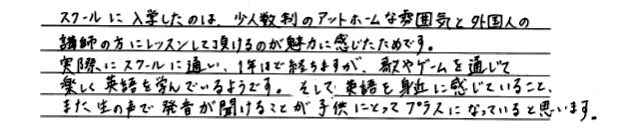 スクールに入学したのは、少人数制のアットホームな雰囲気と外国人の
講師の方にレッスンして頂けるのが魅力に感じたためです。
実際にスクールに通い、1年ほど経ちますが、歌やゲームを通じて
楽しく英語を学んでいるようです。そして英語を身近に感じていること、
また生の声で発音が聞けることが子供にとってプラスになっていると思います。